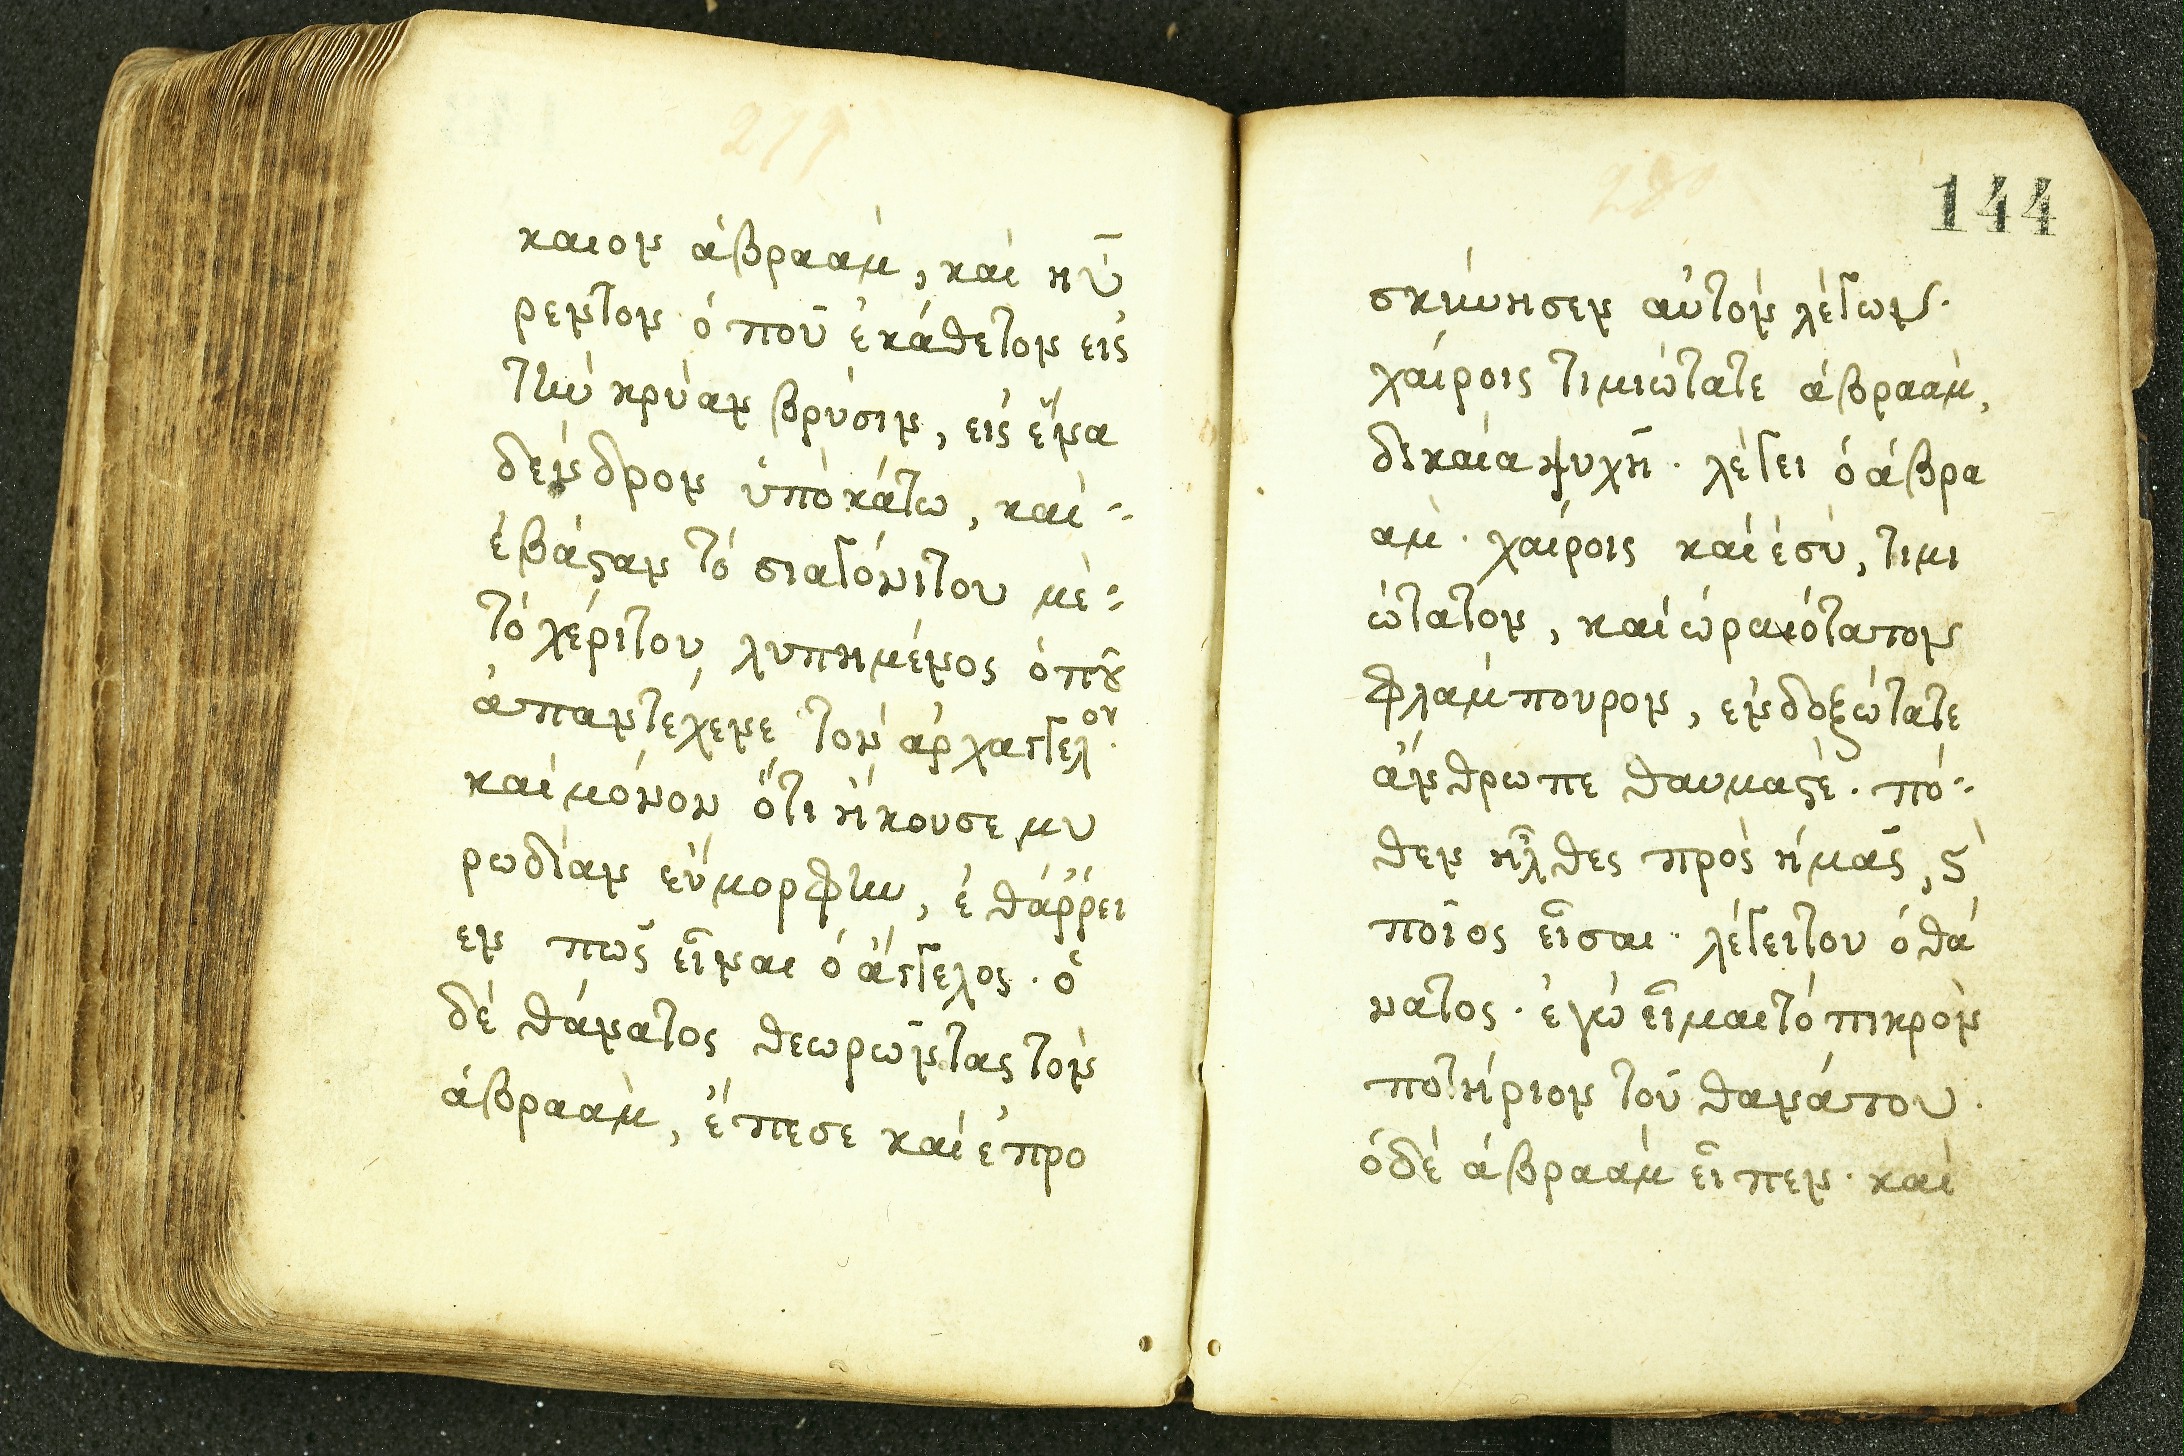 279
καιον ἀβραὰμ, καὶ ηὗ
ρεντον ὁποῦ ἐκάθετον εἰς
τὴν κρύαν βρύσιν, εἰς ἕνα
δένδρον ὑποκάτω, καὶ
ἐβάςαν τό σιαγόνιτου μὲ
τό χέριτου λυπημένος ὁποῦ
ἀπαντέχενε τὸν ἀρχάγγελον.
καὶ μόνον ὅτι ἤκουσε μυ
ρωδίαν εὔμορφην, ἐθάρρει
εν πῶς εἶναι ὁ ἄγγελος. ὁ
δὲ θάνατος θεωρῶντας τὸν
ἀβραὰμ, ἔπεσε καὶ ἐπρο
280
144
σκύνησεν αὐτὸν λέγων.
χαίροις τιμιώτατε ἀβραὰμ,
δικαία ψυχῆ. λέγει ὁ ἀβρα
ὰμ. χαίροις καὶ ἐσὺ, τιμι
ώτατον, καὶ ὡραιότατον
φλάμπουρον, ἐνδοξώτατε
ἄνθρωπε θαυμαςέ. πό
θεν ἦλθες πρὸς ἡμᾶς, ϛ
ποῖος εἶσαι. λέγειτου ὁ θά
νατος. ἐγὼ εἶμαι τό πικρὸν
ποτήριον τοῦ θανάτου.
ὁ δὲ ἀβραὰμ εἶπεν. καὶ